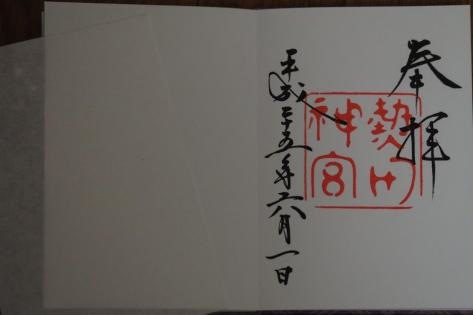 奉拝
熱田
神宮
平成二十五年六月一日